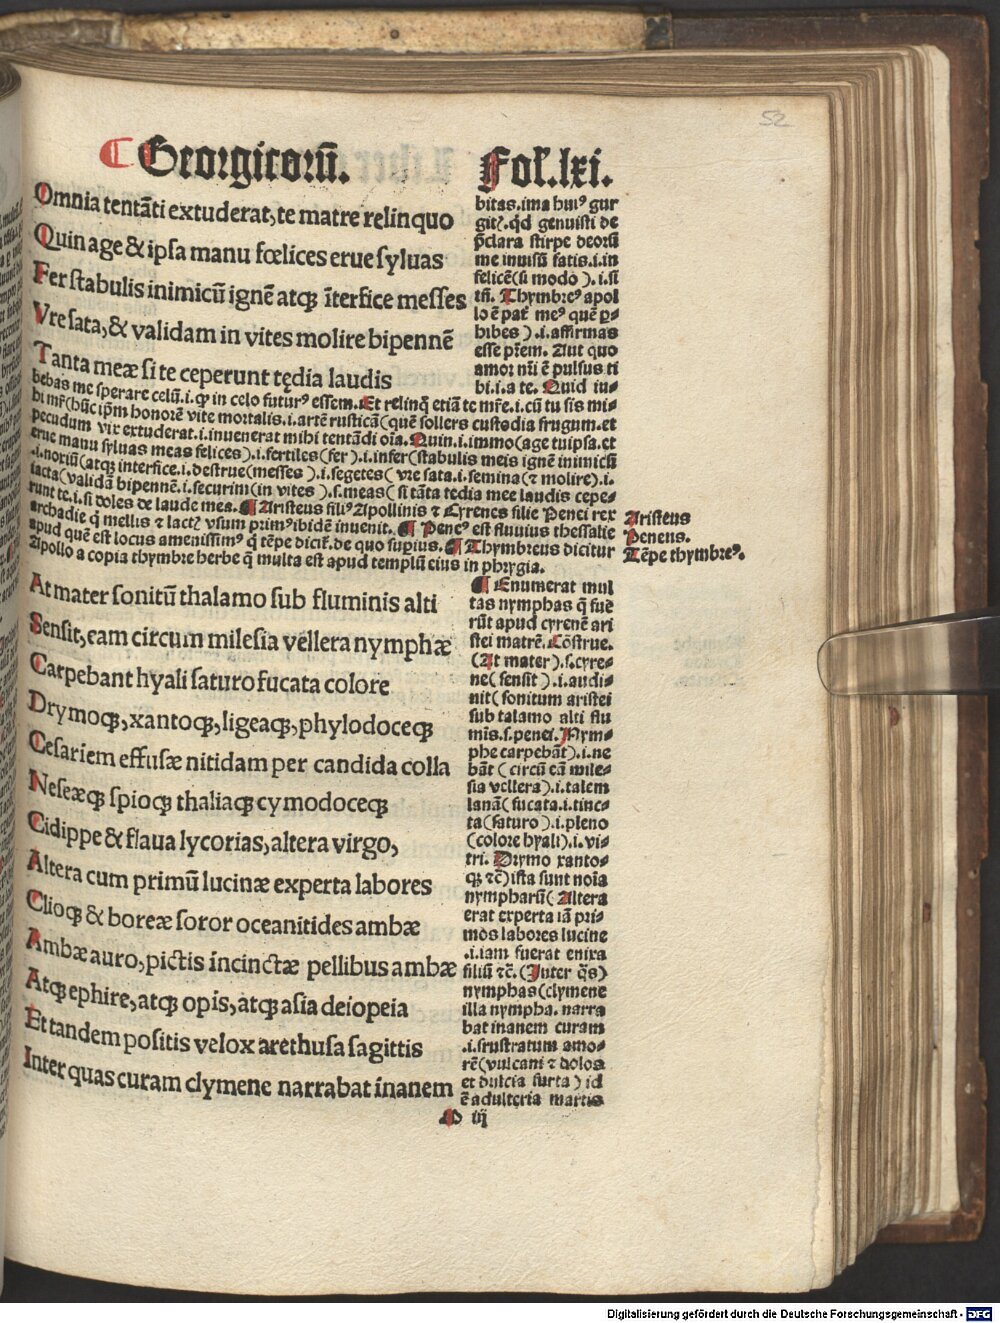 52
Georgicorū. Fol. lxi.
Omnia tentāti extuderat, te matre relinquo
Quin age & ipsa manu fœlices erue syluas
Fer stabulis inimicū ignē atqꝫ īterfice messes
Vre sata, & validam in vites molire bipennē
Tanta meæ si te ceperunt tędia laudis
bitas. ima huiꝰ gur
gitꝭ. qd genuisti de
p̄clara stirpe deorū
me inuisū fatis. i. in
felicē (si modo). i. si
tn̄. Thymbreꝰ apol
lo ē pat̄ meꝰ quē ꝑ⸗
hibes). i. affirmas
esse pr̄em. Aut quo
amor nr̄i ē pulsus ti
bi. i. a te. Quid iu⸗
bebas me sperare celū. i. ꝙ in celo futurꝰ essem. Et relinq̄ etiā te mr̄e. i. cū tu sis mi⸗
hi mr̄ (hūc ip̄m honorē vite mortalis. i. artē rusticā (quē sollers custodia frugum. et
pecudum vix extuderat. i. inuenerat mihi tentādi oīa. Quin. i. immo (age tuipsa. et
erue manu syluas meas felices). i. fertiles (fer). i. infer (stabulis meis ignē inimicū
. i. noxiū (atqꝫ interfice. i. destrue (messes). i. segetes (vre sata. i. semina (⁊ molire). i.
iacta (validā bipennē. i. securim (in vites). s. meas (si tāta tedia mee laudis cepe⸗
runt te. i. si doles de laude mea. ¶ Aristeus filiꝰ Apollinis ⁊ Cyrenes filie Penei rex
archadie q̄ mellis ⁊ lactꝭ vsum primꝰ ibidē inuenit. ¶ Peneꝰ est fluuius thessalie
apud quē est locus amenissimꝰ q̄ tēpe dicit̄. de quo supius. ¶ Thymbreus dicitur
Apollo a copia thymbre herbe q̄ multa est apud templū eius in phrygia.
Aristeus
Peneus.
Tēpe thymbreꝰ.
At mater sonitū thalamo sub fluminis alti
Sensit, eam circum milesia vellera nymphæ
Carpebant hyali saturo fucata colore
Drymoqꝫ, xantoqꝫ, ligeaqꝫ, phylodoceqꝫ
Cesariem effusæ nitidam per candida colla
Neseæqꝫ spioqꝫ thaliaqꝫ cymodoceqꝫ
Cidippe & flaua lycorias, altera virgo,
Altera cum primū lucinæ experta labores
Clioqꝫ & boreæ soror oceanitides ambæ
Ambæ auro, pictis incinctæ pellibus ambæ
Atqꝫ ephire, atqꝫ opis, atqꝫ asia deiopeia
Et tandem positis velox arethusa sagittis
Inter quas curam clymene narrabat inanem
¶ Enumerat mul
tas nymphas q̄ fue
rūt apud cyrenē ari
stei matrē. Cōstrue.
(At mater). s. cyre⸗
ne (sensit). i. audi⸗
uit (sonitum aristei
sub talamo alti flu
mīs. s. penei. Nym⸗
phe carpebāt). i. ne
bāt (circū eā mile⸗
sia vellera). i. talem
lanā (fucata. i. tinc⸗
ta (saturo). i. pleno
(colore hyali). i. vi⸗
tri. Drymo xanto⸗
qꝫ ⁊c̄) ista sunt noīa
nympharū (Altera
erat experta iā pri⸗
mos labores lucine
. i. iam fuerat enixa
filiū ⁊c̄. (Inter q̄s)
nymphas (clymene
illa nympha. narra
bat inanem curam
. i. frustratum amo⸗
rē (vulcani ⁊ dolos
et dulcia furta) id
ē adulteria martis
iij
Digitalisierung gefördert durch die Deutsche Forschungsgemeinschaft - DFG